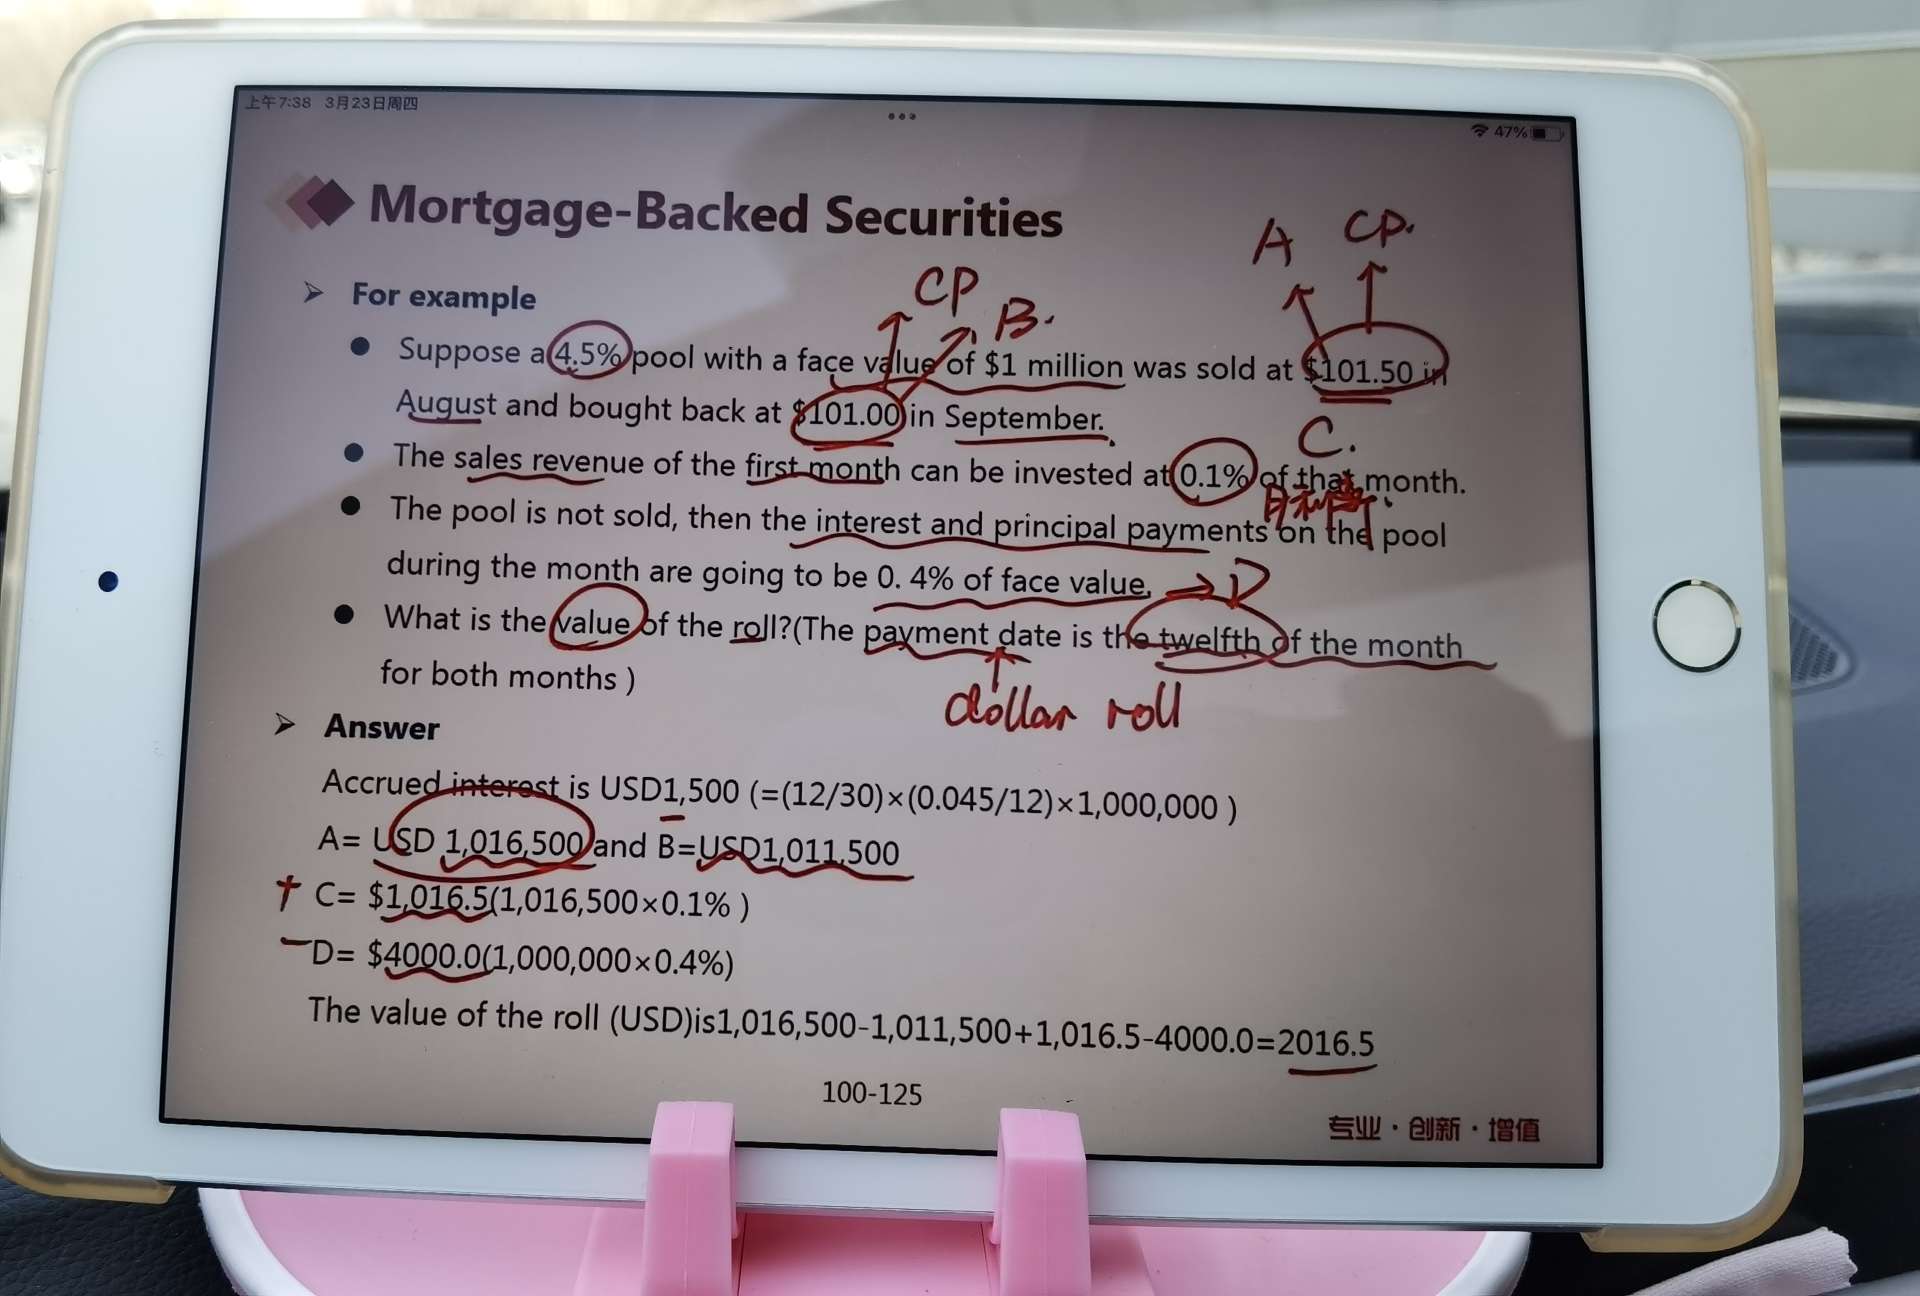 上午7:38 3月23日周四
47%
Mortgage-Backed Securities
A CP.
For example
CP B.
Suppose a 4.5% pool with a face value of $1 million was sold at $101.50 in
August and bought back at $101.00 in September.
C.
The sales revenue of the first month can be invested at 0.1% of that month.
月利率.
The pool is not sold, then the interest and principal payments on the pool
during the month are going to be 0. 4% of face value. → D
What is the value of the roll?(The payment date is the twelfth of the month
for both months )
dollar roll
Answer
Accrued interest is USD1,500 (=(12/30)×(0.045/12)×1,000,000 )
A= USD 1,016,500 and B=USD1,011,500
+ C= $1,016.5(1,016,500×0.1% )
- D= $4000.0(1,000,000×0.4%)
The value of the roll (USD)is1,016,500-1,011,500+1,016.5-4000.0=2016.5
100-125
专业·创新·增值